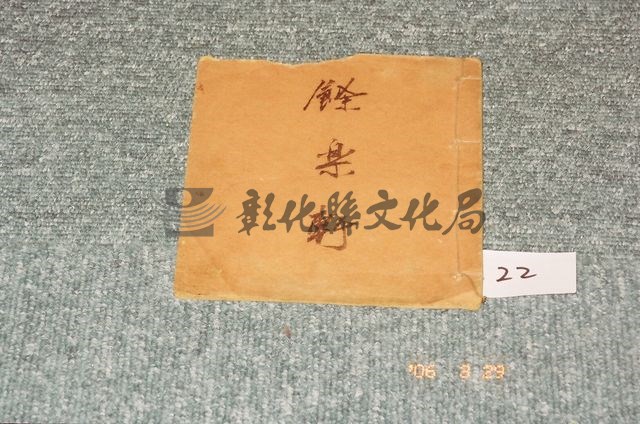 餘
楽
軒
彰化縣文化局
22
'06 3 29